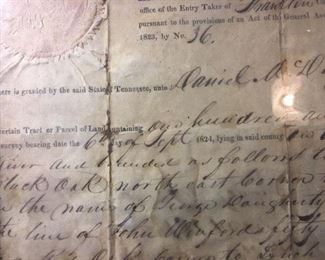 office of the Entry Taker of Franklin
pursuant to the provisions of an Act of the General As
1823, by No. 36.
ere is granted by the said State of Tennessee, unto Daniel Mc D
ertain Tract or Parcel of Land, containing one hundred ac
survey bearing date 6 day of Sept 1824, lying in said county on
River and bounded as follows
lack Oak north east corner
in the name of George Daugherty
line of John Winfords fifty
to Lynch